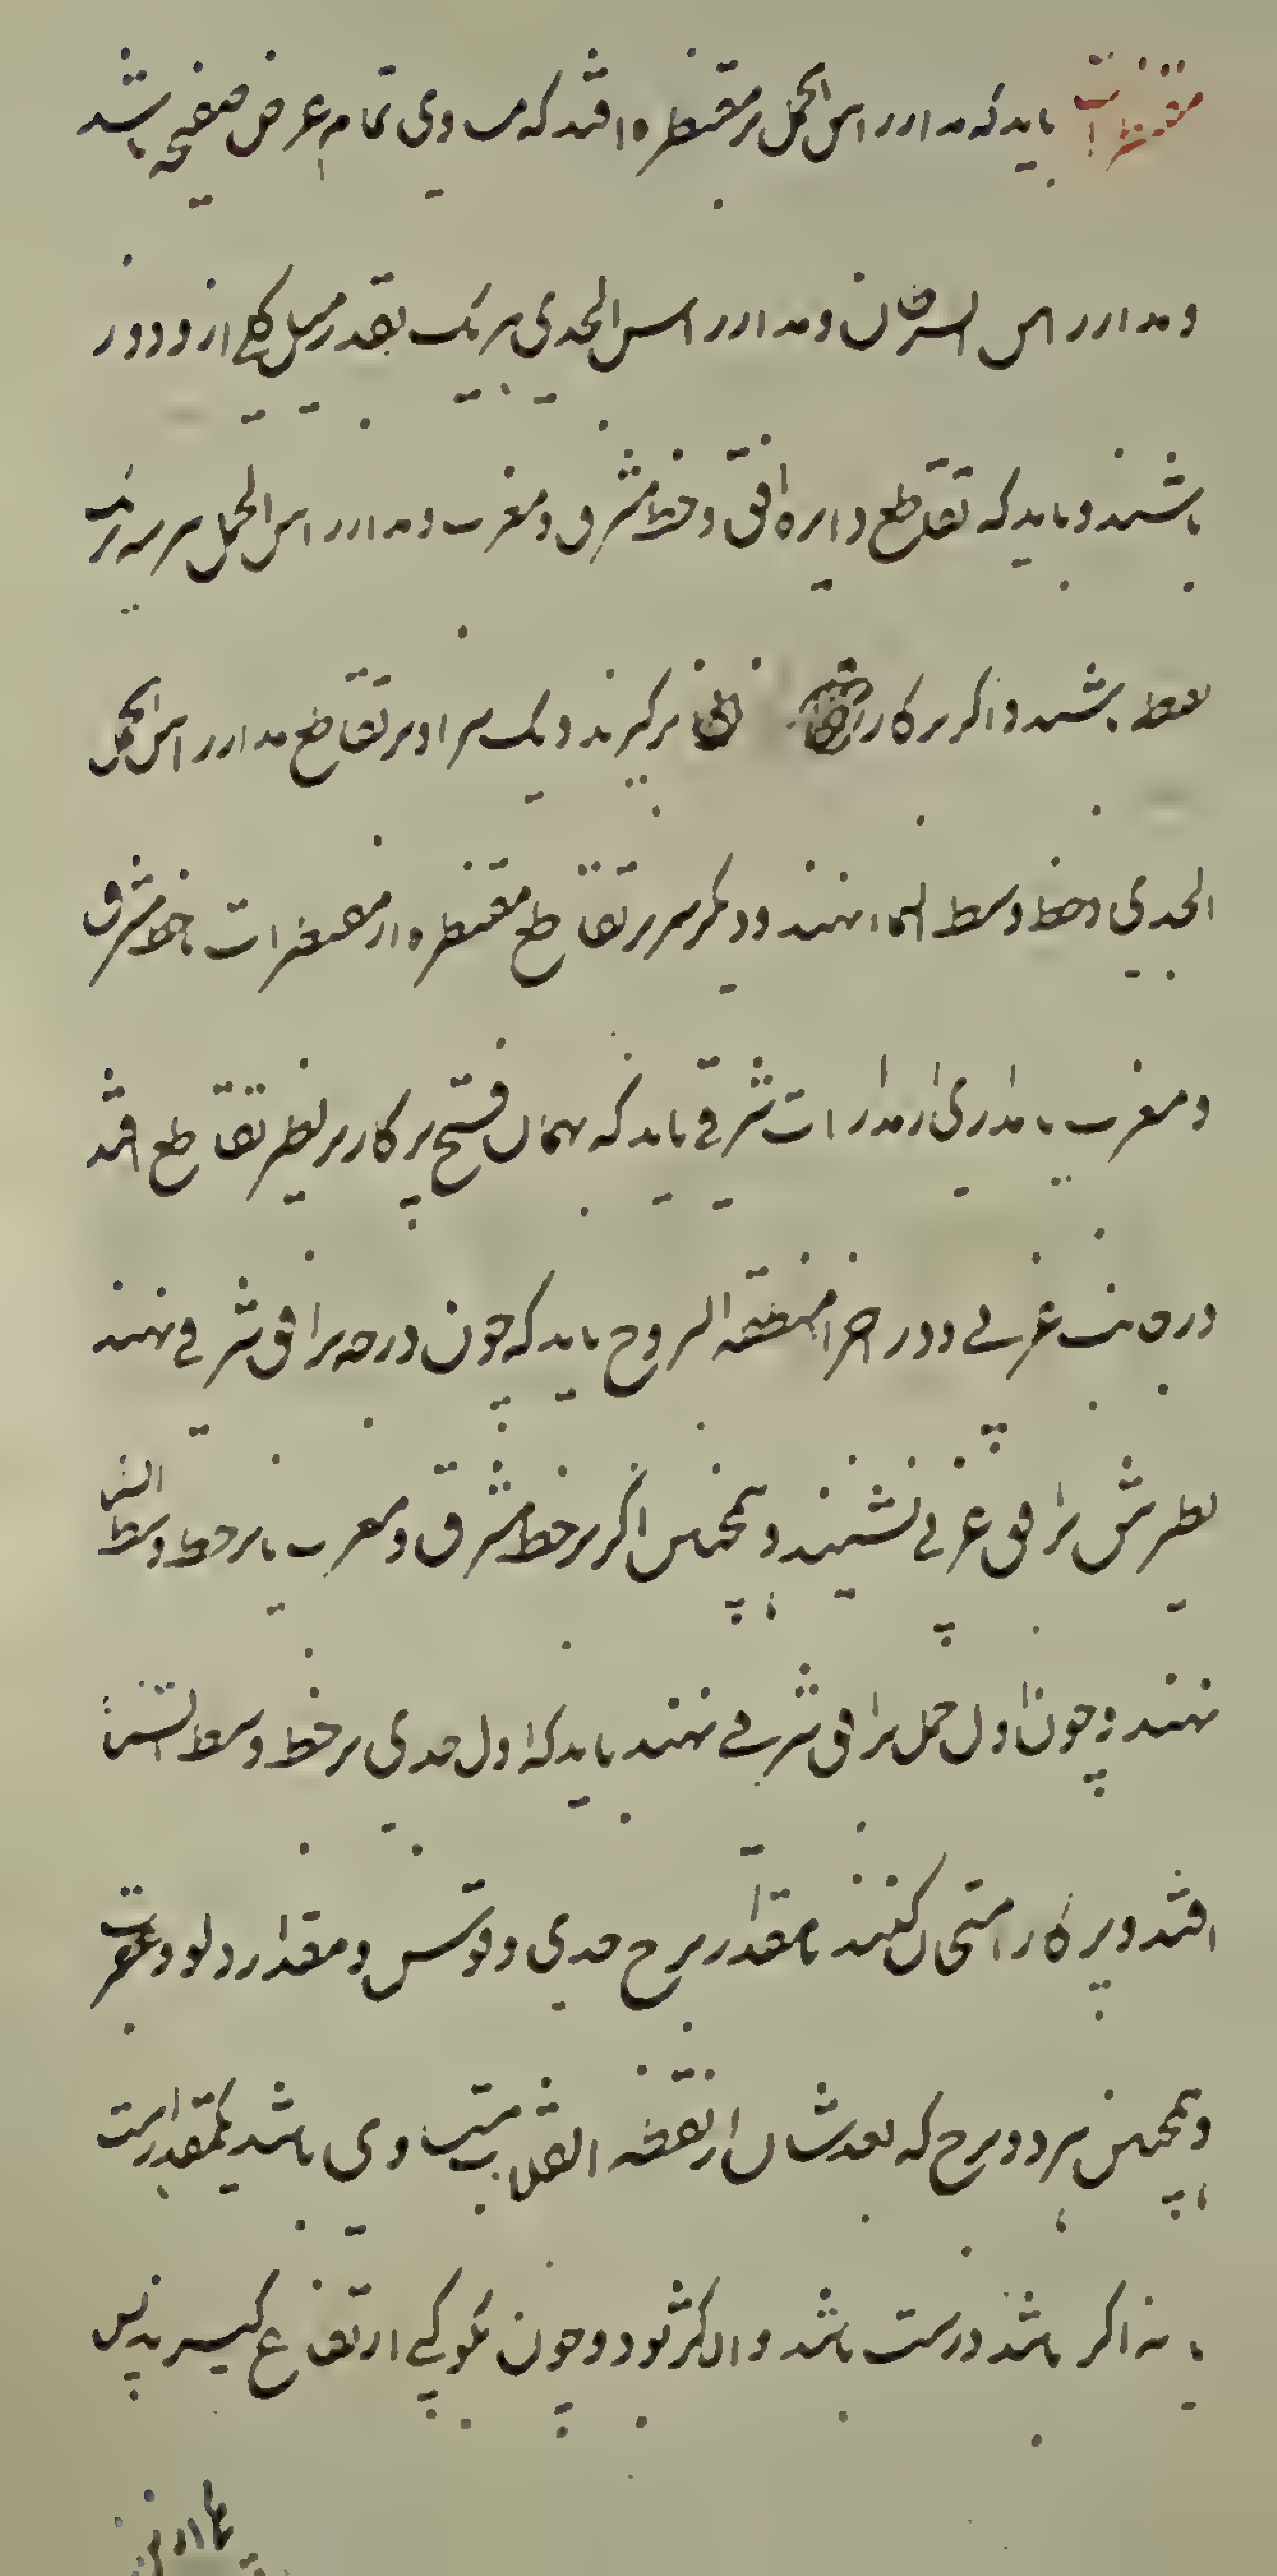 مقنطرات باید که مدار راس الحمل بر مقنطره افتد که مساوی تمام عرض صفیحه باشد
و مدار راس السرطان و مدار راس الجدی هر یک بقدر میل کلی ازو دور
باشند و باید که تقاطع دایره افق و خط مشرق و مغرب و مدار راس الحمل هر سه بر یک
نقطه باشند و اگر پرکار برگیرند و یک سر او بر تقاطع مدار راس الحمل
الجدی و خط وسط السما نهند و دیگر سر بر تقاطع مقنطره از مقنطرات با خط مشرق
و مغرب یا مداری از مدارات شرقی باید که همان فتح پرکار بر نظیر تقاطع افتد
در جانب غربی و در اجزا منطقه البروج باید که چون درجه بر افق شرقی نهند
نظیرش بر افق غربی نشیند و همچنین اگر بر خط مشرق و مغرب یا بر خط وسط السما
نهند و چون اول حمل بر افق شرقی نهند باید که اول جدی بر خط وسط السما
افتد و بپرکار امتحان کنند تا مقدار برج جدی و قوس و مقدار دلو و عقرب
و همچنین هر دو برج که بعدشان از نقطه انقلاب متساوی باشد بیک مقدار است
یا نه اگر باشد درست باشد و الا کژ بود و چون بکوکبی ارتفاع گیرند پس